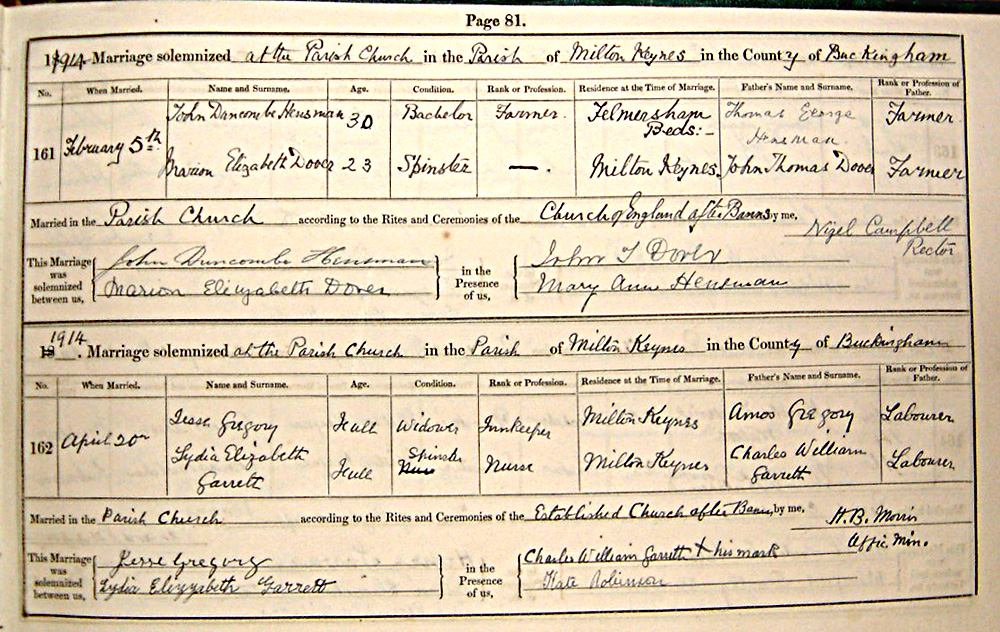 Page 81.
1914 Marriage solemnized at the Parish Church in the Parish of Milton Keynes in the County of Buckingham
No. When Married. Name and Surname. Age. Condition. Rank or Profession. Residence at the Time of Marriage. Father's Name and Surname. Rank or Profession of Father.
161 February 5th John Duncombe Hensman 30 Bachelor Farmer. Felmersham Beds:- Thomas George Hensman. Farmer.
Marion Elizabeth Dover 23 Spinster —. Milton Keynes. John Thomas Dover Farmer
Married in the Parish Church according to the Rites and Ceremonies of the Church of England after Banns by me,
Nigel Campbell
Rector
This Marriage was solemnized between us, John Duncombe Hensman in the Presence of us, John T Dover
Marion Elizabeth Dover Mary Ann Hensman
1914. Marriage solemnized at the Parish Church in the Parish of Milton Keynes in the County of Buckingham
No. When Married. Name and Surname. Age. Condition. Rank or Profession. Residence at the Time of Marriage. Father's Name and Surname. Rank or Profession of Father.
162 April 20th Jesse Gregory Full Widower Innkeeper Milton Keynes Amos Gregory Labourer
Lydia Elizabeth Garrett Full Spinster Nurse Milton Keynes Charles William Garrett Labourer
Married in the Parish Church according to the Rites and Ceremonies of the Established Church after Banns, by me,
H.B. Morris
Offic. Min.
This Marriage was solemnized between us, Jesse Gregory in the Presence of us, Charles William Garrett X his mark
Lydia Elizabeth Garrett Kate Robinson